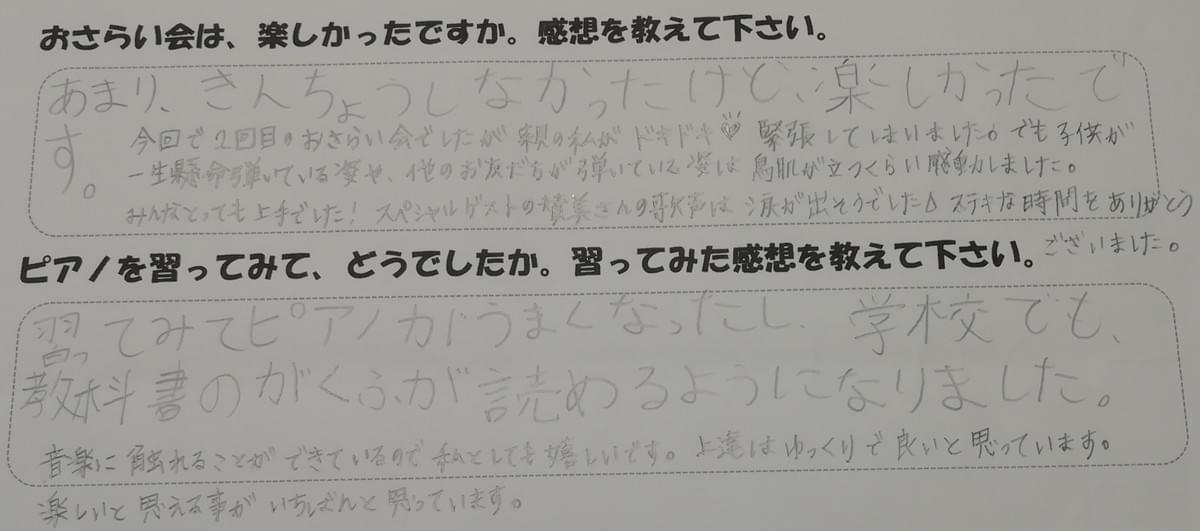 おさらい会は、楽しかったですか。感想を教えて下さい。
あまり、きんちょうしなかったけど、楽しかったで
す。
今回で2回目のおさらい会でしたが親の私がドキドキ♡緊張してしまいました。でも子供が
一生懸命弾いている姿や、他のお友だちが弾いている姿は鳥肌が立つくらい感動しました。
みんなとっても上手でした!スペシャルゲストの貴美さんの歌声は涙が出そうでした。ステキな時間をありがとう
ございました。
ピアノを習ってみて、どうでしたか。習ってみた感想を教えて下さい。
習ってみてピアノがうまくなったし、学校でも、
教科書のがくふが読めるようになりました。
音楽に触れることができているので私としても嬉しいです。上達はゆっくりで良いと思っています。
楽しいと思える事がいちばんと思っています。